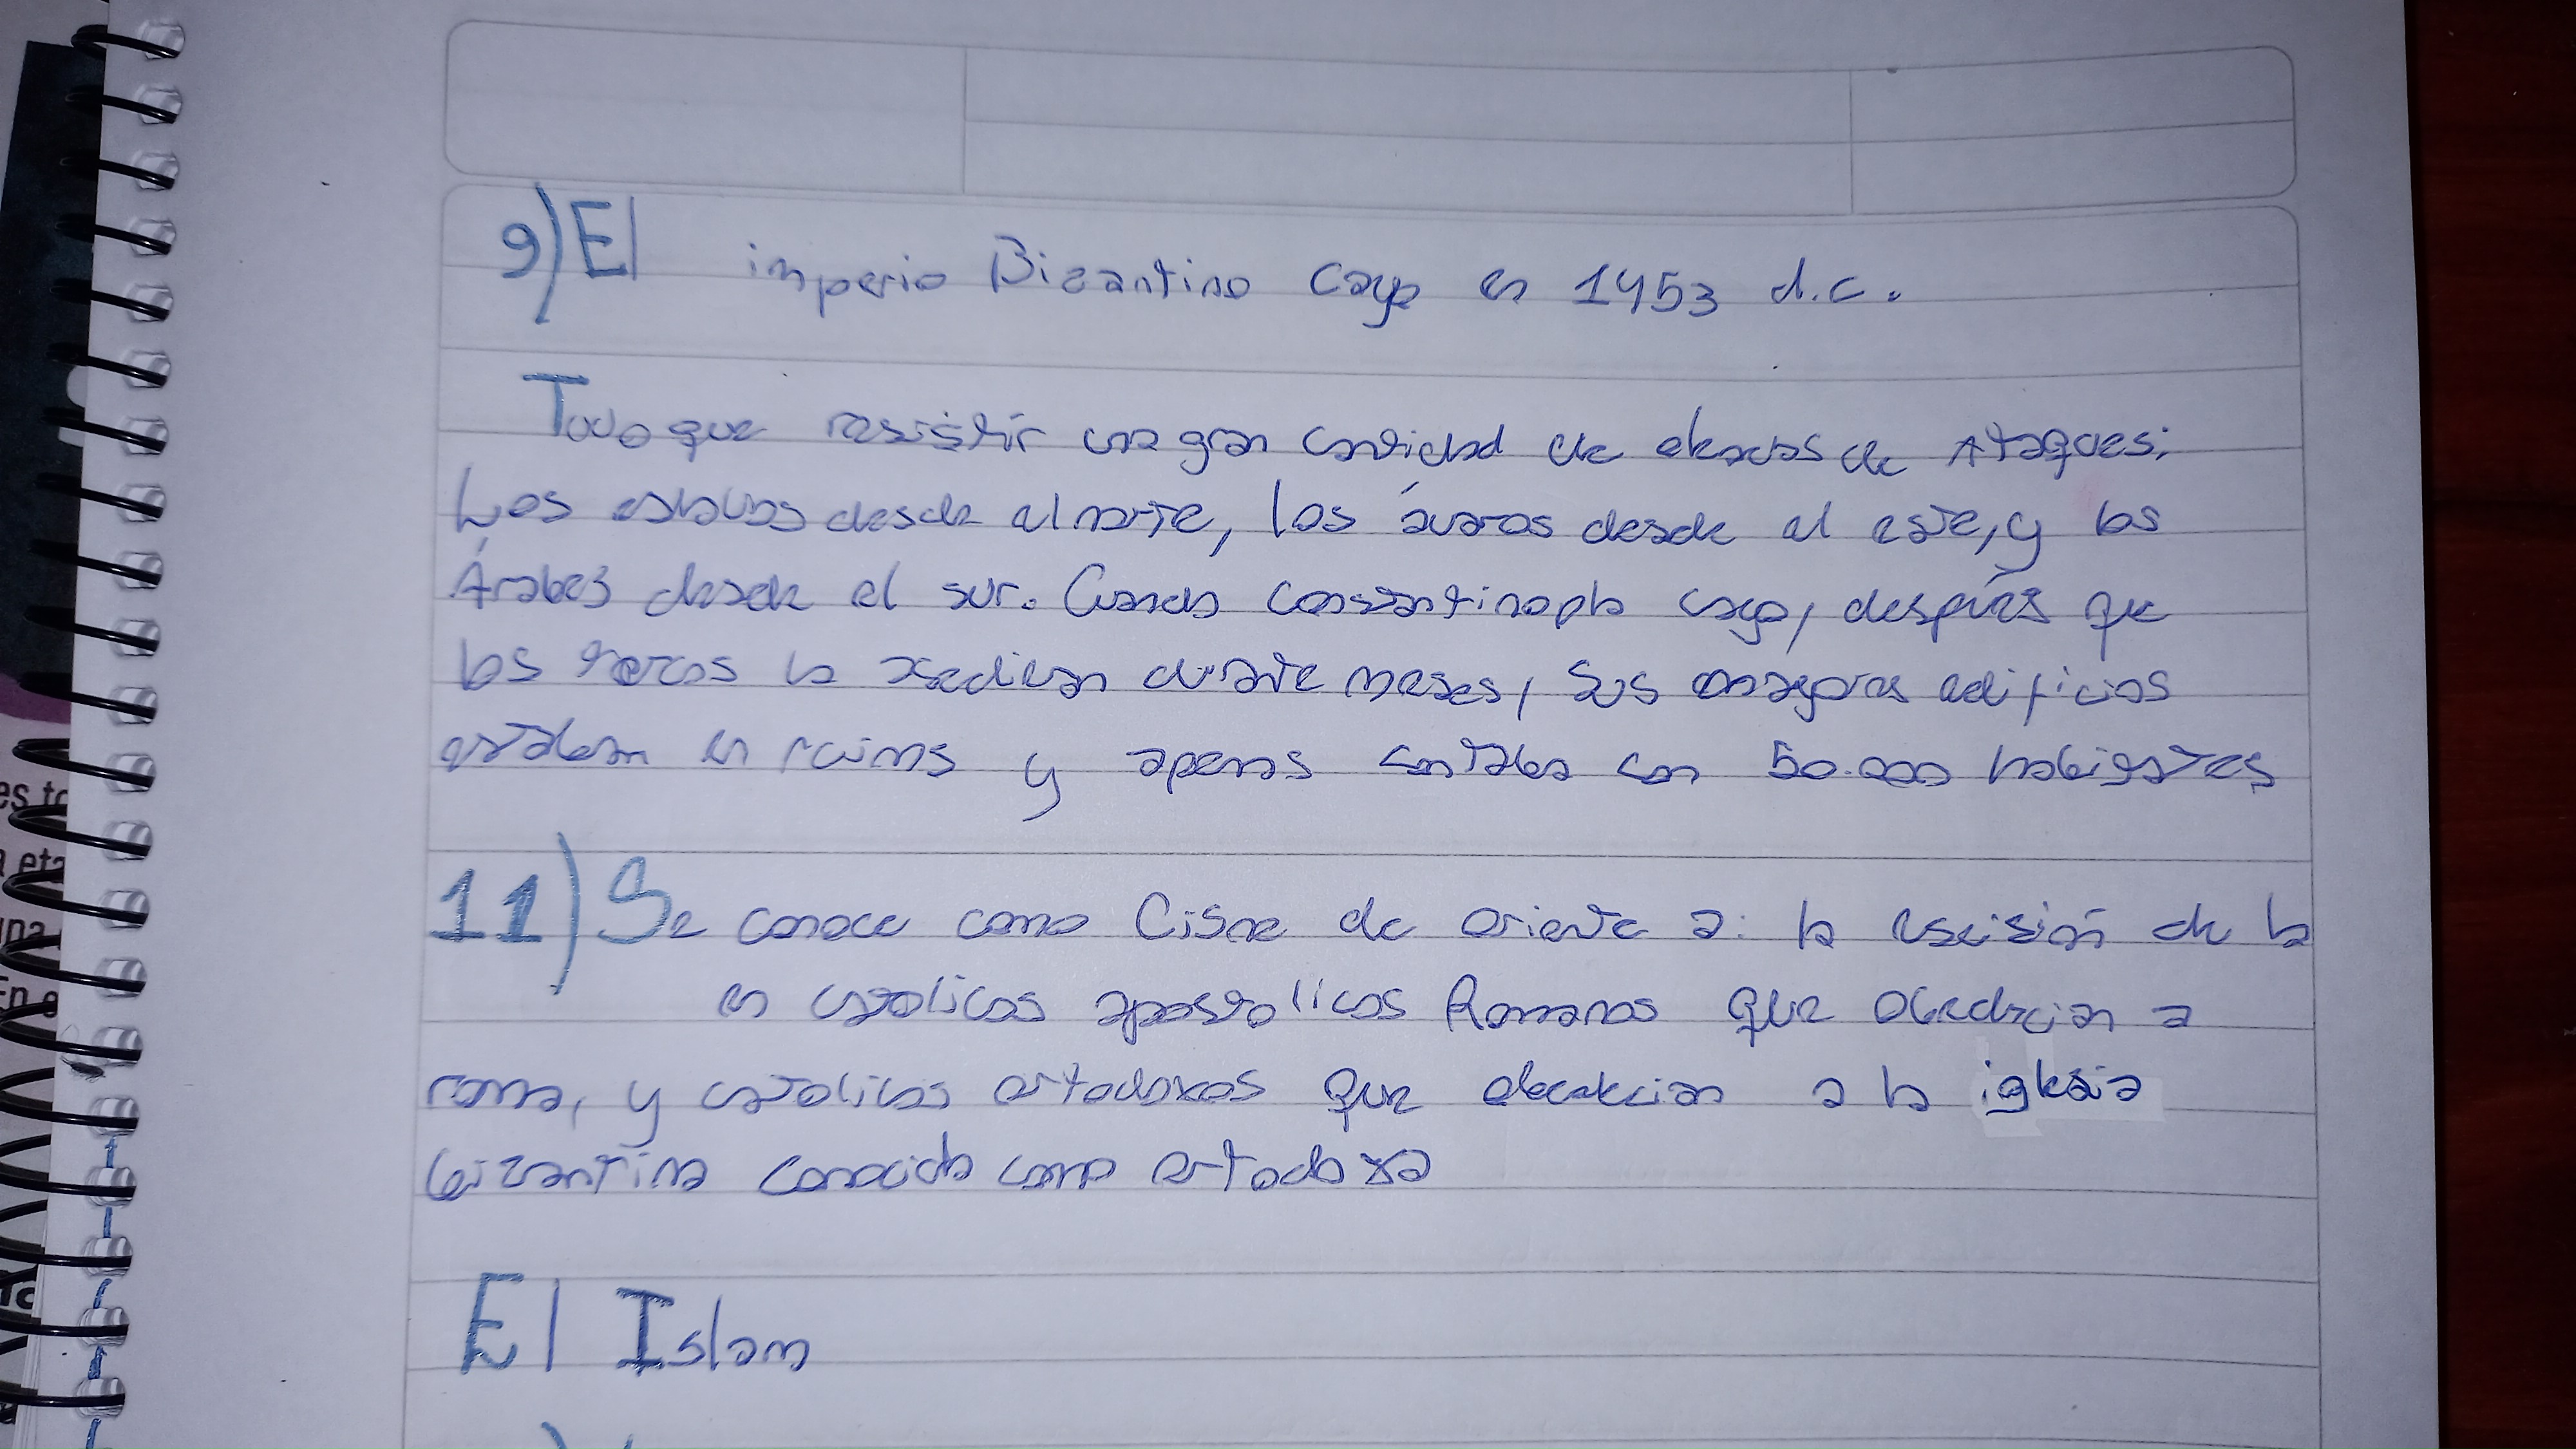 9) El imperio Bizantino Cayo en 1453 d.c.
Tuvo que resistir una gran cantidad de de Ataques;
Los eslavos desde al norte, los ávaros desde al este, y los
Árabes desde el sur. Cuando Constantinopla cayo, después que
los turcos la asedieran durante meses, Sus mayores edificios
estaban en ruinas y apenas contaba con 50.000 habigantes
11) Se conoce como Cisme de oriente a: la escisión de la
en catolicos apostolicos Romanos que obedecian a
roma, y catolicos ortodoxos que obedecian a la iglesia
bizantina conocida como ortodoxa
El Islam
es to
a eta
una
En e